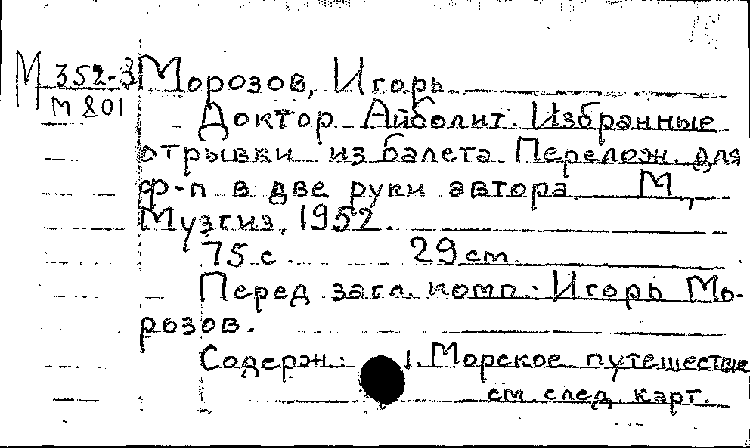 М 352-3 Морозов, Игорь
М 801 Доктор Айболит. Избранные
отрывки из балета. Перелож. для
ф-п в две руки автора. М.,
Музгиз, 1952.
75 с. 29 см.
Перед загл. комп.: Игорь Мо-
розов.
Содерж.: 1. Морское путешествие
см. след. карт.